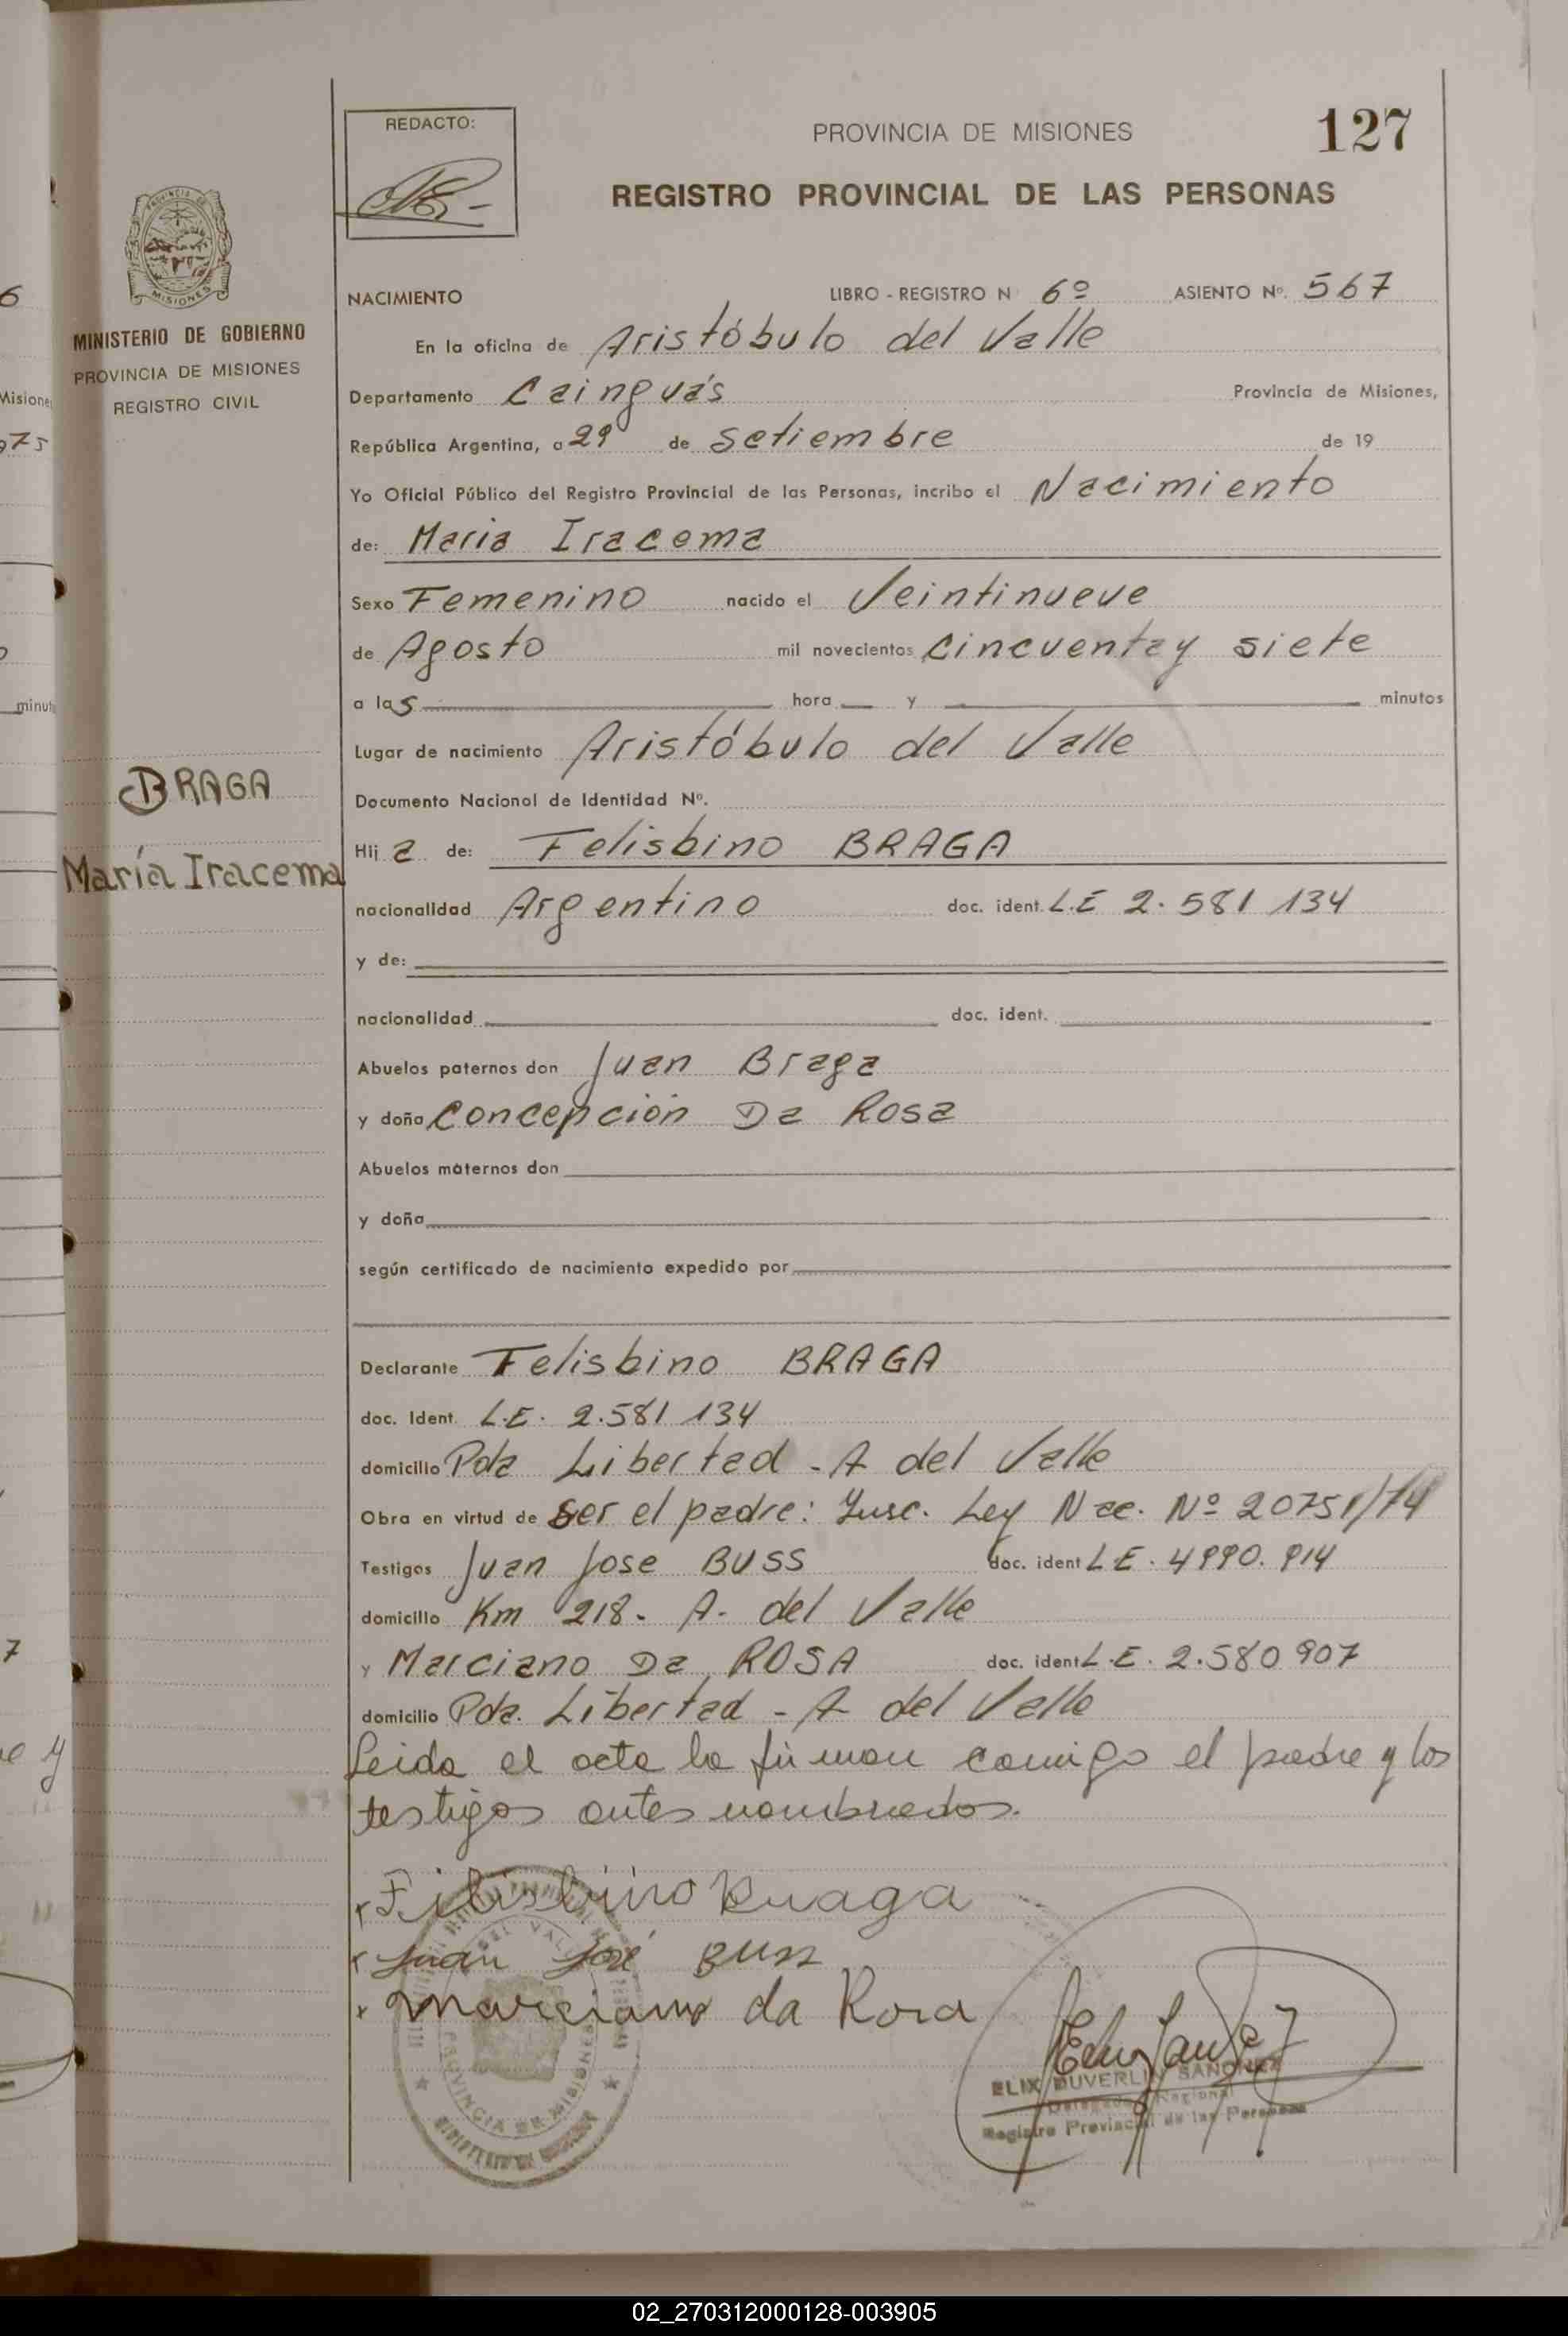 REDACTO:
PROVINCIA DE MISIONES
127
REGISTRO PROVINCIAL DE LAS PERSONAS
MISIONES
MINISTERIO DE GOBIERNO
PROVINCIA DE MISIONES
REGISTRO CIVIL
NACIMIENTO LIBRO - REGISTRO N 6º ASIENTO Nº. 567
En la oficina de Aristóbulo del Valle
Departamento Cainguás Provincia de Misiones,
República Argentina, a 29 de Setiembre de 19
Yo Oficial Público del Registro Provincial de las Personas, incribo el Nacimiento
de: Maria Iracema
Sexo Femenino nacido el Veintinueve
de Agosto mil novecientos Cincuenta y siete
a las hora y minutos
Lugar de nacimiento Aristóbulo del Valle
BRAGA
María Iracema
Documento Nacional de Identidad Nº.
Hij a de: Felisbino BRAGA
nacionalidad Argentino doc. ident. L.E 2.581 134
y de:
nacionalidad doc. ident.
Abuelos paternos don Juan Braga
y doña Concepción Da Rosa
Abuelos maternos don
y doña
según certificado de nacimiento expedido por
Declarante Felisbino BRAGA
doc. Ident. L.E. 2.581 134
domicilio Pda Libertad - A del Valle
Obra en virtud de ser el padre: Insc. Ley Nac. Nº 20751/74
Testigos Juan Jose BUSS doc. ident L.E. 4990.914
domicilio Km 218- A. del Valle
y Marciano Da ROSA doc. ident L.E. 2.580 907
domicilio Pda. Libertad - A del Valle
Leida el acta la firman comigo el padre y los
testigos antes nombrados.
Felisbino Braga
Juan José Buss
Marciano da Rosa
PROVINCIA DE MISIONES
ELIX DUVERLI SANCHEZ
Delegado Regional
Registro Provincial de las Personas
02_270312000128-003905